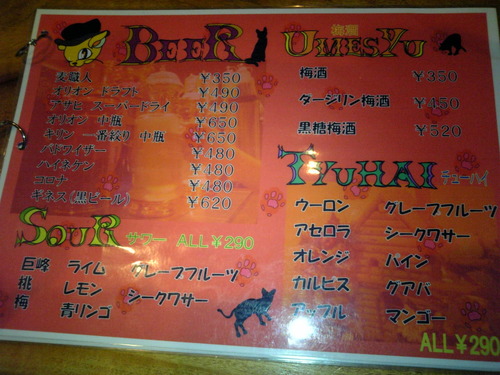 BEER
麦職人 ¥350
オリオン ドラフト ¥490
アサヒ スーパードライ ¥490
オリオン 中瓶 ¥650
キリン 一番絞り 中瓶 ¥650
バドワイザー ¥480
ハイネケン ¥480
コロナ ¥480
ギネス(黒ビール) ¥620
SOUR サワー ALL¥290
巨峰 ライム グレープフルーツ
桃 レモン シークワサー
梅 青リンゴ
UMESYU 梅酒
梅酒 ¥350
ダージリン梅酒 ¥450
黒糖梅酒 ¥520
TYUHAI チューハイ
ウーロン グレープフルーツ
アセロラ シークワサー
オレンジ パイン
カルピス グアバ
アップル マンゴー
ALL¥290